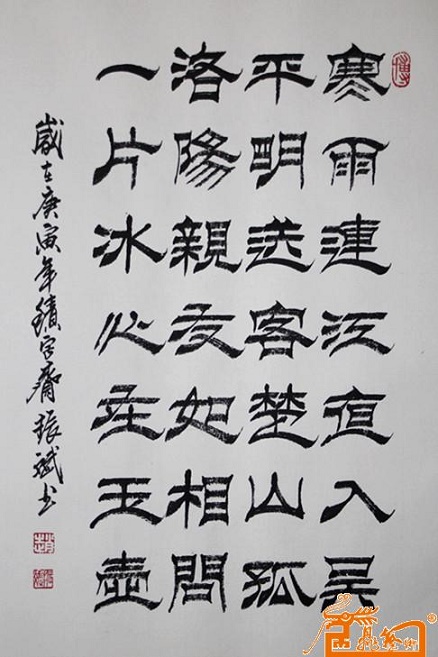 寒雨連江夜入吴
平明送客楚山孤
洛陽親友如相問
一片冰心在玉壺
歲在庚寅年齋振斌書